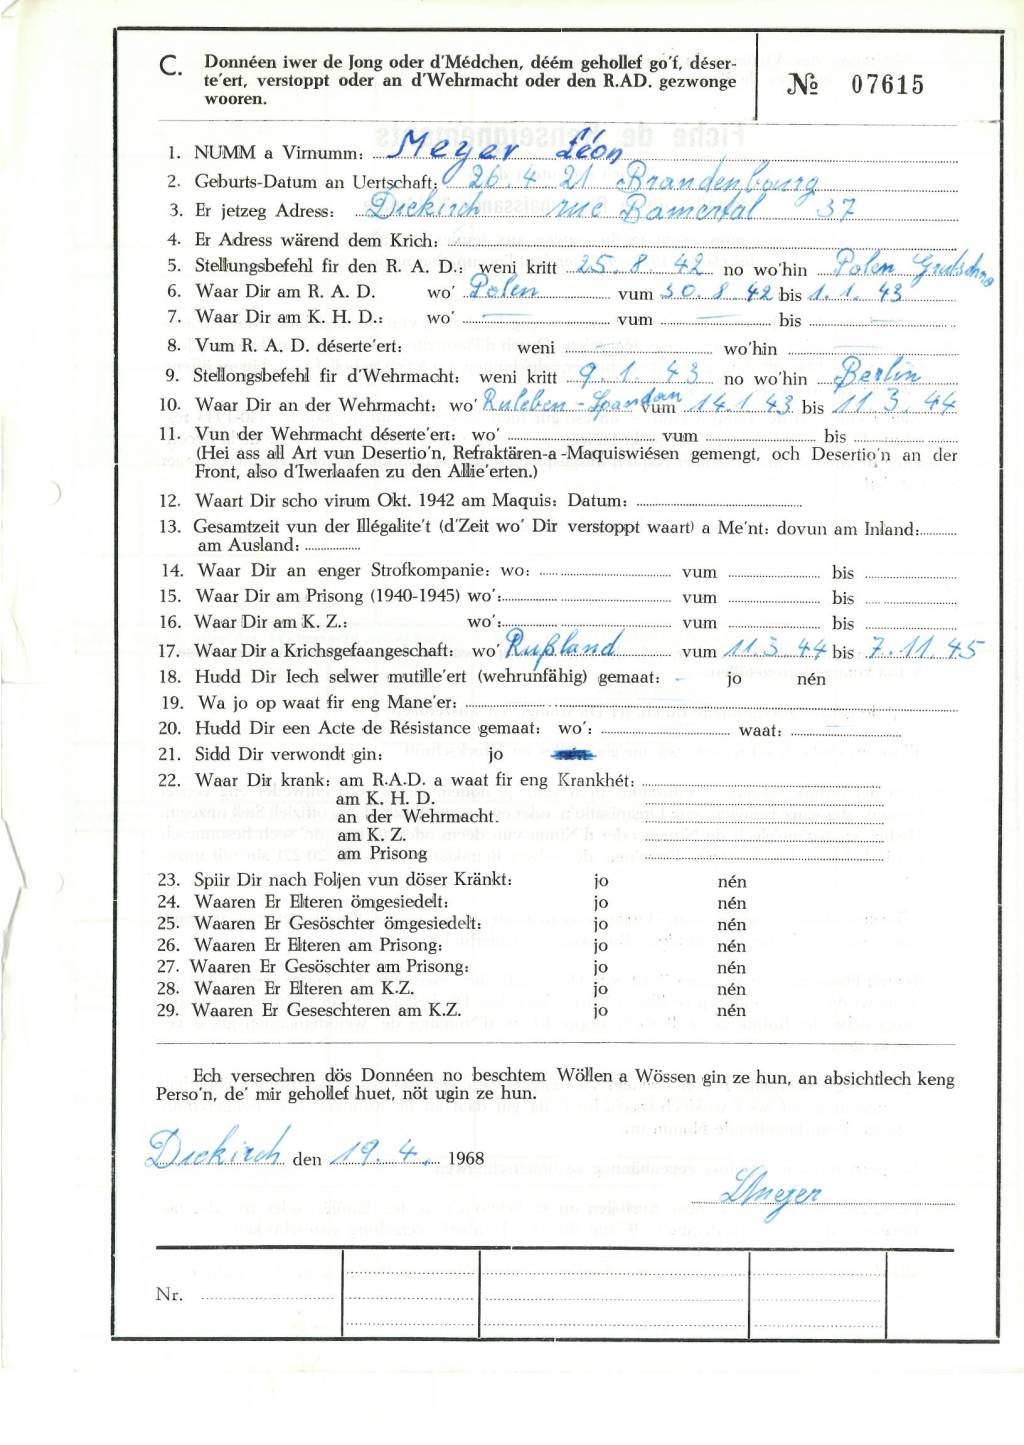 C. Donnéen iwer de Jong oder d'Médchen, déém gehollef go'f, déser-
te'ert, verstoppt oder an d'Wehrmacht oder den R.AD. gezwonge
wooren.
№ 07615
1. NUMM a Virnumm: Meyer Léon
2. Geburts-Datum an Uertschaft: 26.4 21 Brandenbourg
3. Er jetzeg Adress: Diekirch rue Bamertal 37
4. Er Adress wärend dem Krich:
5. Stellungsbefehl fir den R. A. D.: weni kritt 25. 8. 42 no wo'hin Polen
6. Waar Dir am R. A. D. wo' Polen vum 30. 8. 42 bis 1. 1. 43
7. Waar Dir am K. H. D.: wo' — vum — bis —
8. Vum R. A. D. déserte'ert: weni — wo'hin —
9. Stellongsbefehl fir d'Wehrmacht: weni kritt 9. 1. 43 no wo'hin Berlin
10. Waar Dir an der Wehrmacht: wo' Ruleben-Spandau vum 14.1 43 bis 11 3. 44
11. Vun der Wehrmacht déserte'ert: wo' vum bis
(Hei ass all Art vun Desertio'n, Refraktären-a-Maquiswiésen gemengt, och Desertio'n an der
Front, also d'Iwerlaafen zu den Allie'erten.)
12. Waart Dir scho virum Okt. 1942 am Maquis: Datum:
13. Gesamtzeit vun der Illégalite't (d'Zeit wo' Dir verstoppt waart) a Me'nt: dovun am Inland:
am Ausland:
14. Waar Dir an enger Strofkompanie: wo: vum bis
15. Waar Dir am Prisong (1940-1945) wo': vum bis
16. Waar Dir am K. Z.: wo': vum bis
17. Waar Dir a Krichsgefaangeschaft: wo' Rußland vum 11.3. 44 bis 7. 11. 45
18. Hudd Dir Iech selwer mutille'ert (wehrunfähig) gemaat: - jo nén
19. Wa jo op waat fir eng Mane'er:
20. Hudd Dir een Acte de Résistance gemaat: wo': waat:
21. Sidd Dir verwondt gin: jo nén
22. Waar Dir krank: am R.A.D. a waat fir eng Krankhét:
am K. H. D.
an der Wehrmacht.
am K. Z.
am Prisong
23. Spiir Dir nach Foljen vun döser Kränkt: jo nén
24. Waaren Er Elteren ömgesiedelt: jo nén
25. Waaren Er Gesöschter ömgesiedelt: jo nén
26. Waaren Er Elteren am Prisong: jo nén
27. Waaren Er Gesöschter am Prisong: jo nén
28. Waaren Er Elteren am K.Z. jo nén
29. Waaren Er Geseschteren am K.Z. jo nén
Ech versechren dös Donnéen no beschtem Wöllen a Wössen gin ze hun, an absichtlech keng
Perso'n, de' mir gehollef huet, nöt ugin ze hun.
Diekirch den 19. 4. 1968
LMeyer
Nr.